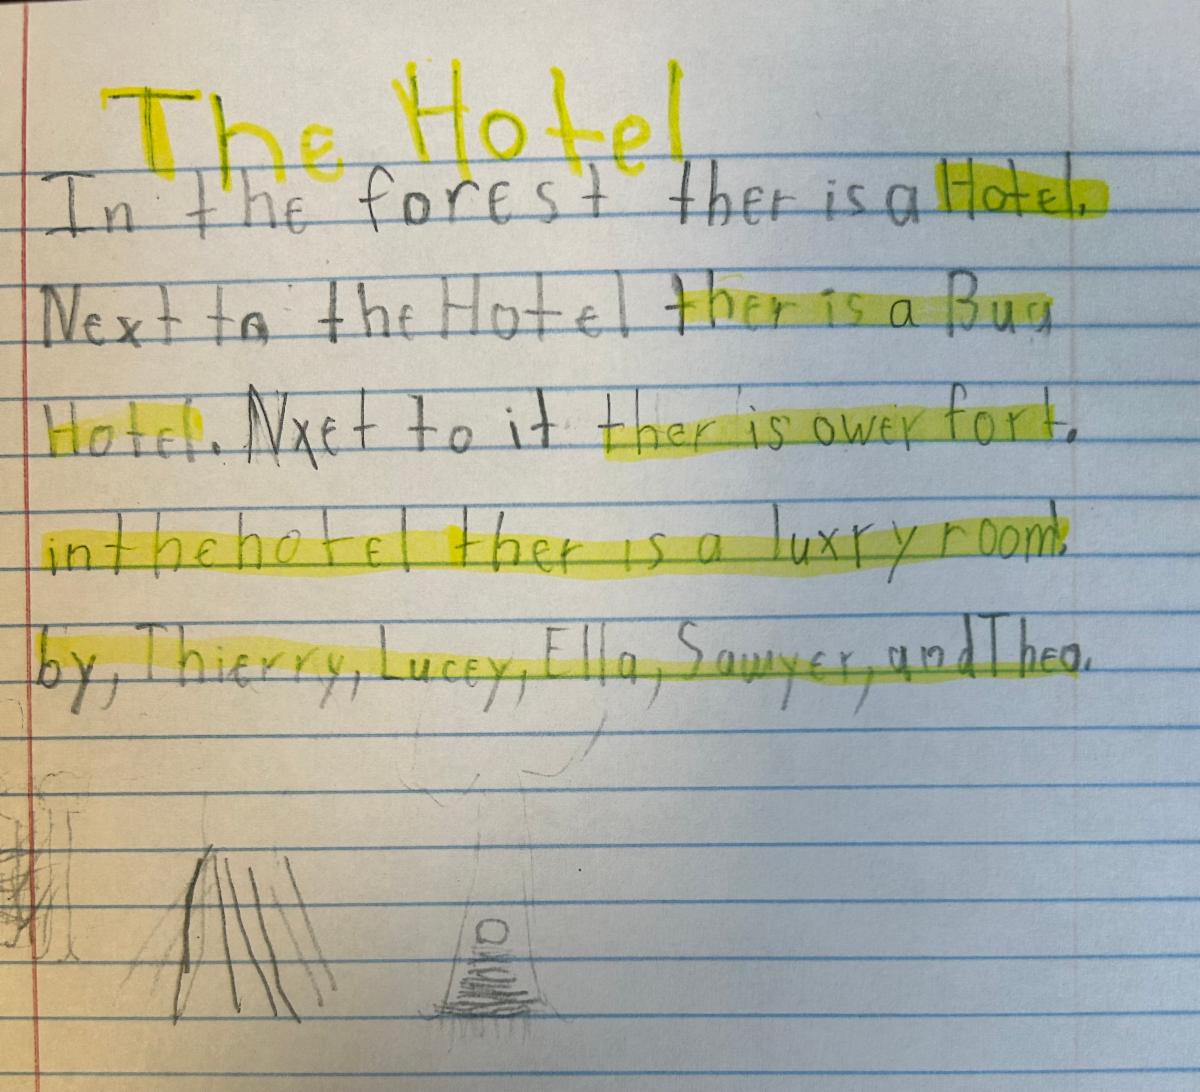 The Hotel
In the forest ther is a Hotel.
Next to the Hotel ther is a Bug
Hotel. Nxet to it ther is ower fort.
in the hotel ther is a luxry room.
by, Thierry, Lucey, Ella, Sawyer, and Theo.